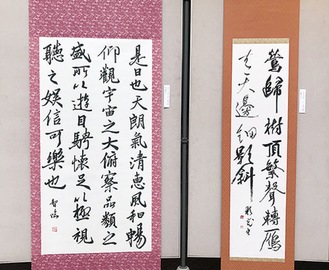 是日也天朗氣清惠風和暢
仰觀宇宙之大俯察品類之
盛所以遊目騁懷足以極視
聽之娛信可樂也
鶯歸樹頂繁聲轉雁
去天邊細影斜